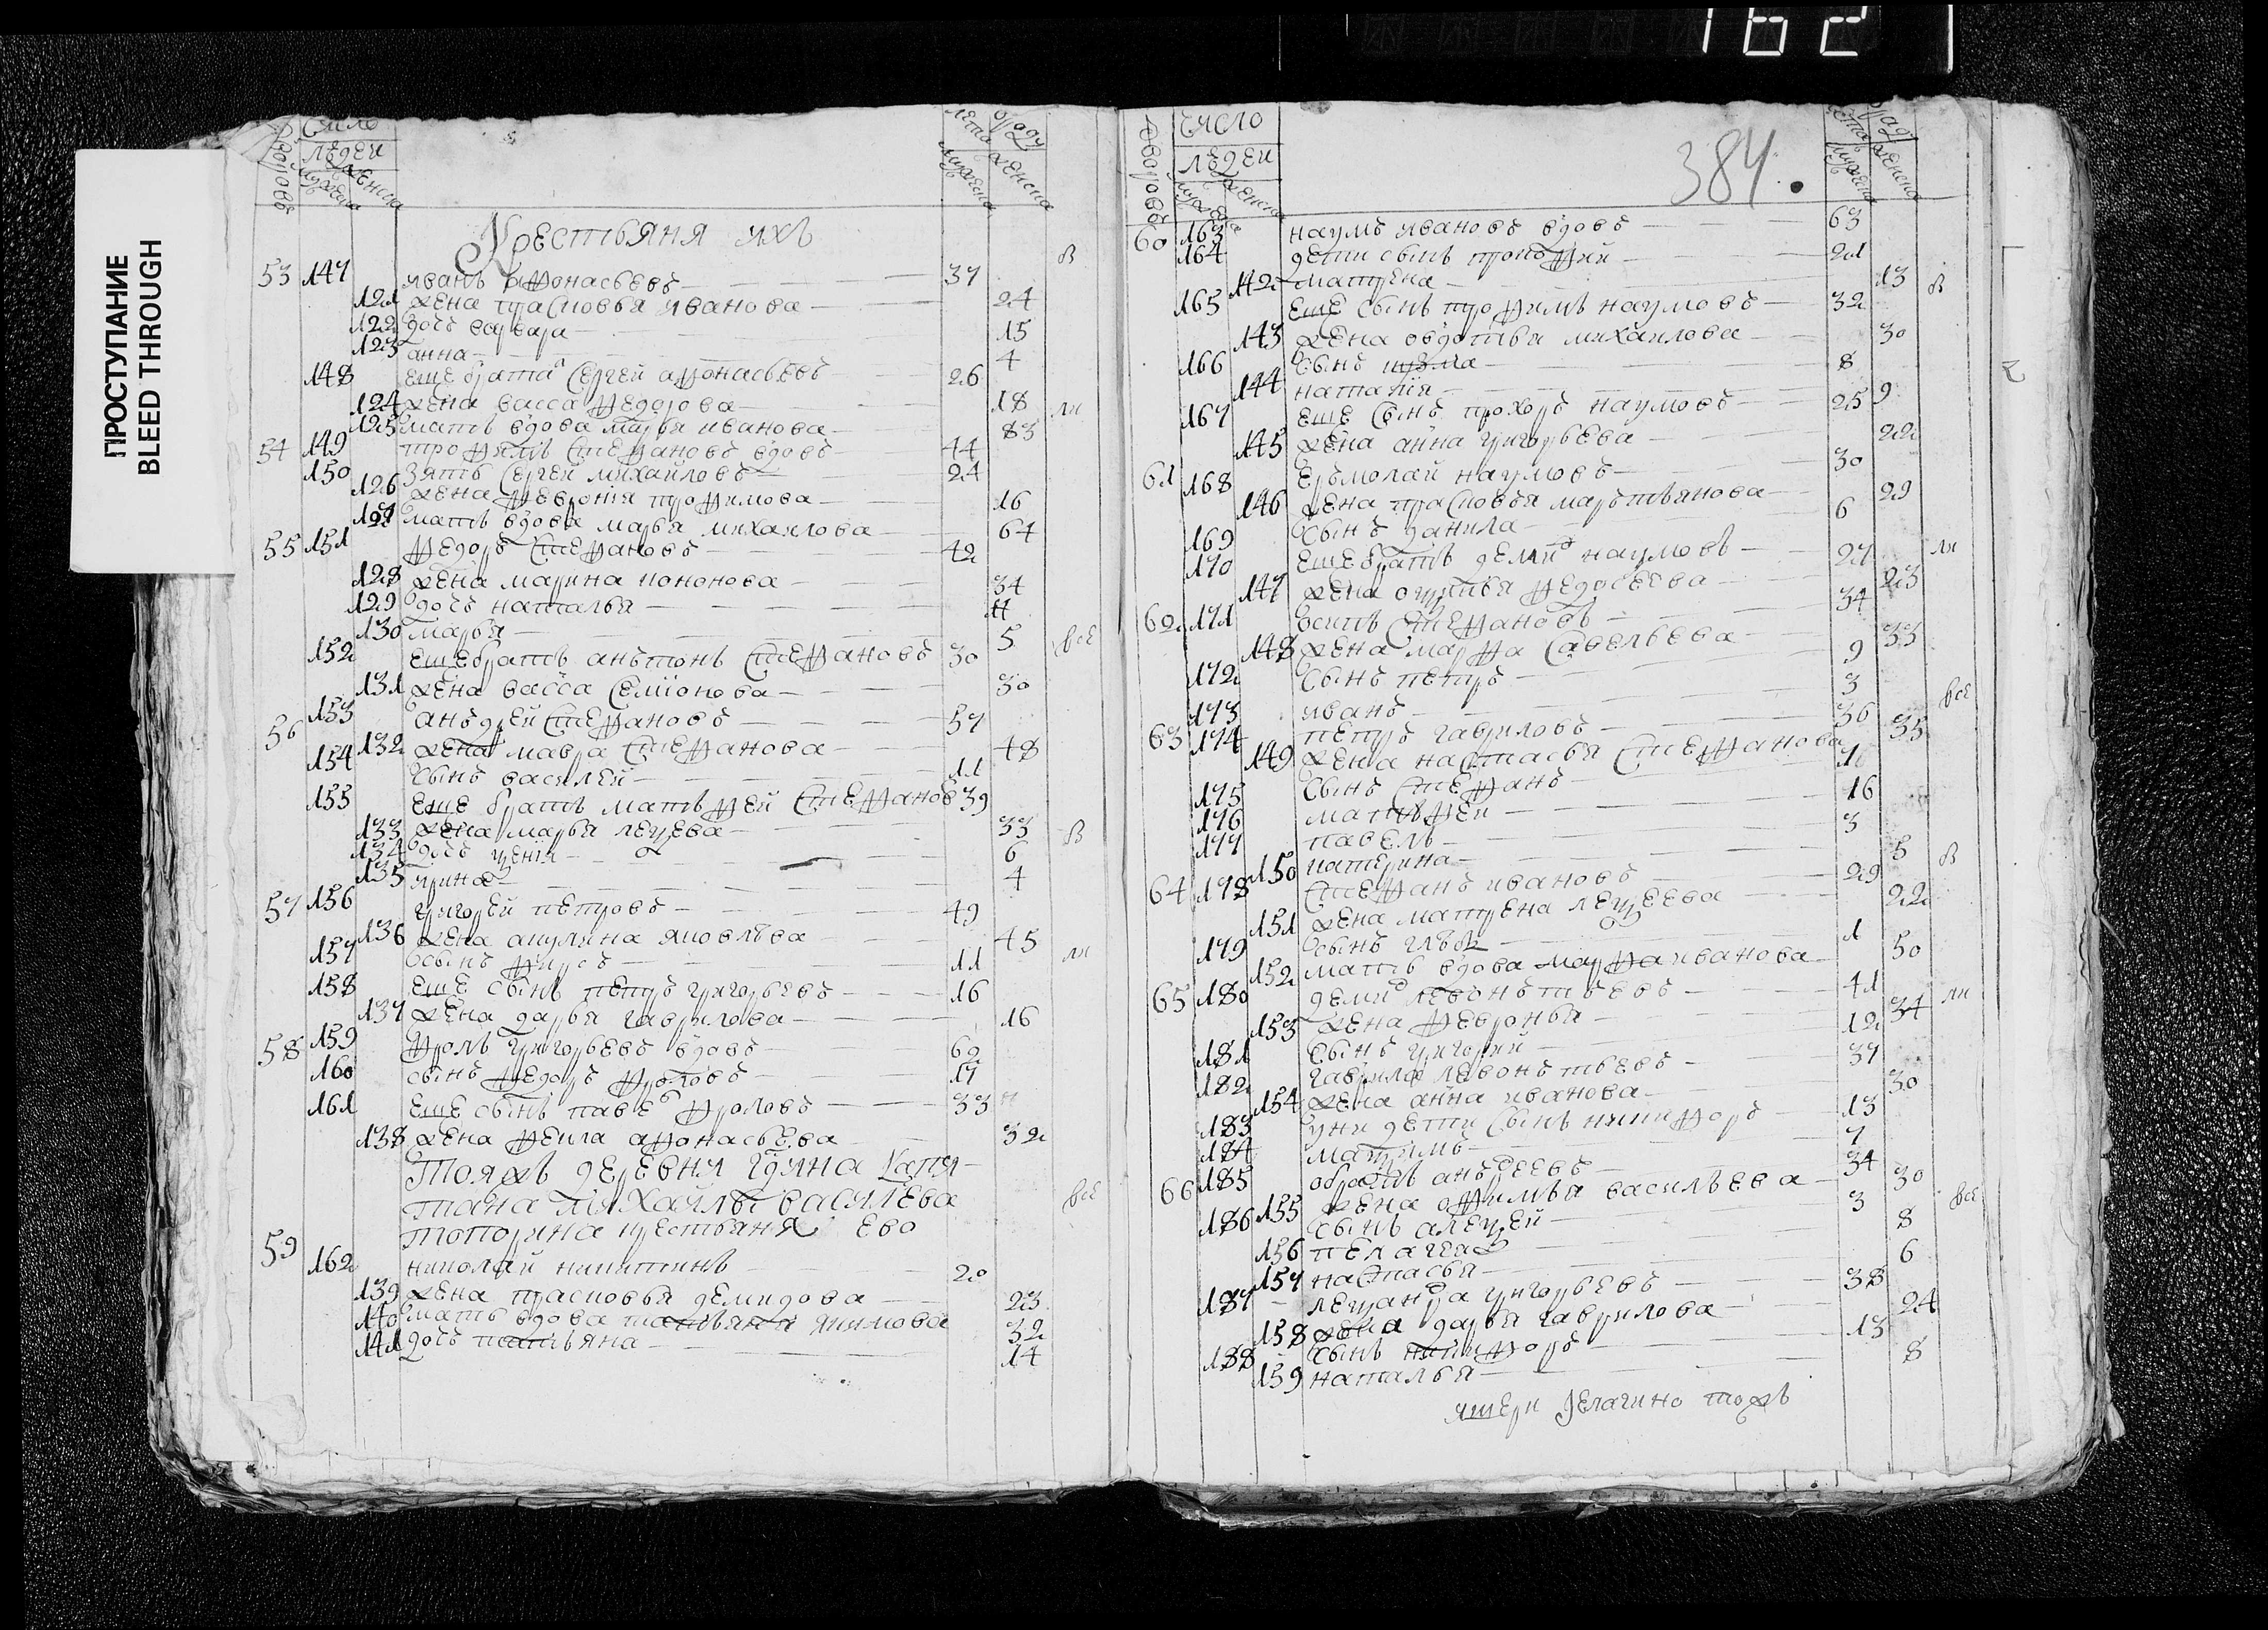 162
ПРОСТУПАНИЕ
BLEED THROUGH
число
людеи
дворовъ
мужеска
женска
лета
Крестьяня ихъ
53 147 иванъ афонасьевъ 37
121 жена прасковья иванова 24
122 дочь варвара 15
123 анна 4
148 еще брата сергей афонасьевъ 26
124 жена васса федорова 18
125 мать вдова марья иванова 83
54 149 трофимъ стефановъ вдовъ 44
150 зять сергей михайловъ 24
126 жена феврония трофимова 16
127 мать вдова марья михаилова 64
55 151 федоръ стефановъ 42
128 жена марина кононова 34
129 дочь наталья 11
130 марья 5
152 еще братъ анътонъ стефановъ 30
131 жена васса семионова 30
56 153 анъдрей стефановъ 57
132 жена мавра стефанова 48
154 сынъ василей 11
155 еще братъ матвфей стефановъ 39
133 жена марья
134 дочь 6
135 ирина 4
57 156 григорей петровъ 49
136 жена акулина яковлева 45
157 сынъ фирсъ 11
158 еще сынъ петръ григорьевъ 16
137 жена дарья гаврилова 16
58 159 фролъ григорьевъ вдовъ 62
160 сынъ федоръ фроловъ 17
161 еще сынъ павелъ фроловъ 33
138 жена фекла афонасьева 32
тояжъ деревни
тана михайлы василева
топорина крестьяня ево
59 162 николай никитинъ 20
139 жена прасковья демидова 23
140 мать вдова татьяна якимова 32
141 дочь татьяна 14
в
ли
все
в
ли
все
384.
число
людеи
дворовъ
мужеска
женска
60 163 наумъ ивановъ вдовъ 63
164 дети сынъ прокофий 21
142 матрена 13
165 еще сынъ трофимъ наумовъ 32
143 жена овдотья михаилова 30
166 сынъ кузма 8
144 наталия 9
167 еще сынъ прохоръ наумовъ 25
145 жена анна григорьева 22
61 168 ерьмолай наумовъ 30
146 жена прасковья марътьянова 29
169 сынъ данила 6
170 еще братъ демидъ наумовъ 27
147 жена федосеева 23
62 171 осипъ стефановъ 34
148 жена марфа савельева 33
172 сынъ петръ 9
173 иванъ 3
63 174 петръ гавриловъ 36
149 жена настасья стефанова 35
175 сынъ стефанъ
176 матвфей 16
177 павелъ 3
150 катерина 5
64 178 стефанъ ивановъ 29
151 жена матрена 22
179 сынъ глебъ 1
152 мать вдова марфа иванова 50
65 180 демидъ левонътьевъ 41
153 жена февронья 34
181 сынъ григорий 12
182 гаврила левонътьевъ 37
154 жена анна иванова 30
183 у ни дети сынъ никифоръ 13
184 матфимъ 7
66 185 анъдреевъ 34
155 жена офимья васильева 30
186 сынъ алексей 3
156 пелагея 8
157 настасья 6
187 григорьевъ 38
158 жена дарья гаврилова 24
188 сынъ никифоръ 13
159 наталья 8
в
ли
все
в
ли
все